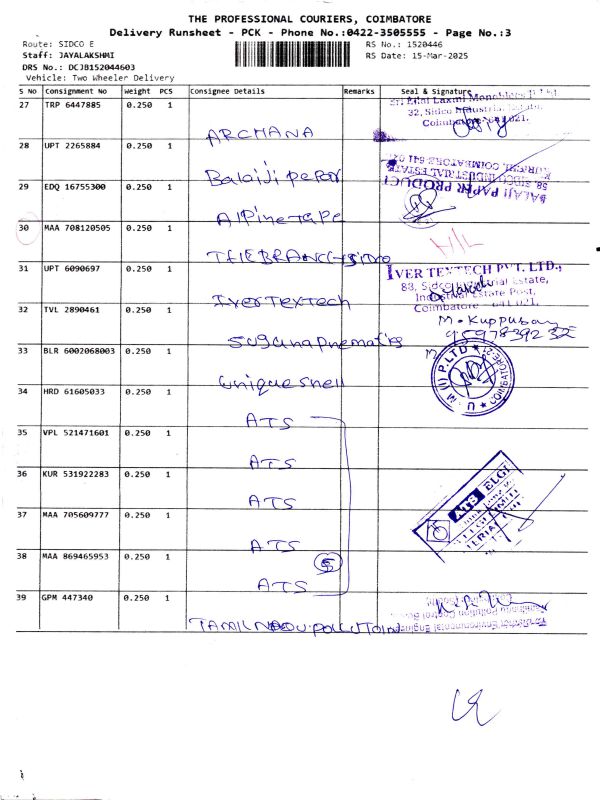 THE PROFESSIONAL COURIERS, COIMBATORE
Delivery Runsheet - PCK - Phone No.:0422-3505555 - Page No.:3
Route: SIDCO E
RS No.: 1520446
Staff: JAYALAKSHMI
RS Date: 15-Mar-2025
DRS No.: DCJB152044603
Vehicle: Two Wheeler Delivery
S NO Consignment No Weight PCS Consignee Details Remarks Seal & Signature
27 TRP 6447885 0.250 1
32, Sidco Industrial Estate,
Coimbatore - 641 021.
ARCHANA
28 UPT 2265884 0.250 1
BALAJI PAPER PRODUCT
58, SIDCO INDUSTRIAL ESTATE
KURICHI, COIMBATORE-641 021
Balaiji peper
29 EDQ 16755300 0.250 1
Alpinetape
30 MAA 708120505 0.250 1
H/L
THEBRANCH SIDCO
31 UPT 6090697 0.250 1
IVER TEXTECH PVT. LTD.,
83, Sidco Industrial Estate,
Industrial Estate Post,
Coimbatore - 641 021.
Ivertextech
32 TVL 2890461 0.250 1
M. Kuppusamy
9597839232
Sugunapnematis
33 BLR 6002068003 0.250 1
M (I) P.LTD
COIMBATORE-21
uniqueshell
34 HRD 61605033 0.250 1
ATS
35 VPL 521471601 0.250 1
ATS
36 KUR 531922283 0.250 1
ATS ELGI
ATS
37 MAA 705609777 0.250 1
ATS
38 MAA 869465953 0.250 1
5
ATS
39 GPM 447340 0.250 1
TAMIL NADU POLLUTOIN